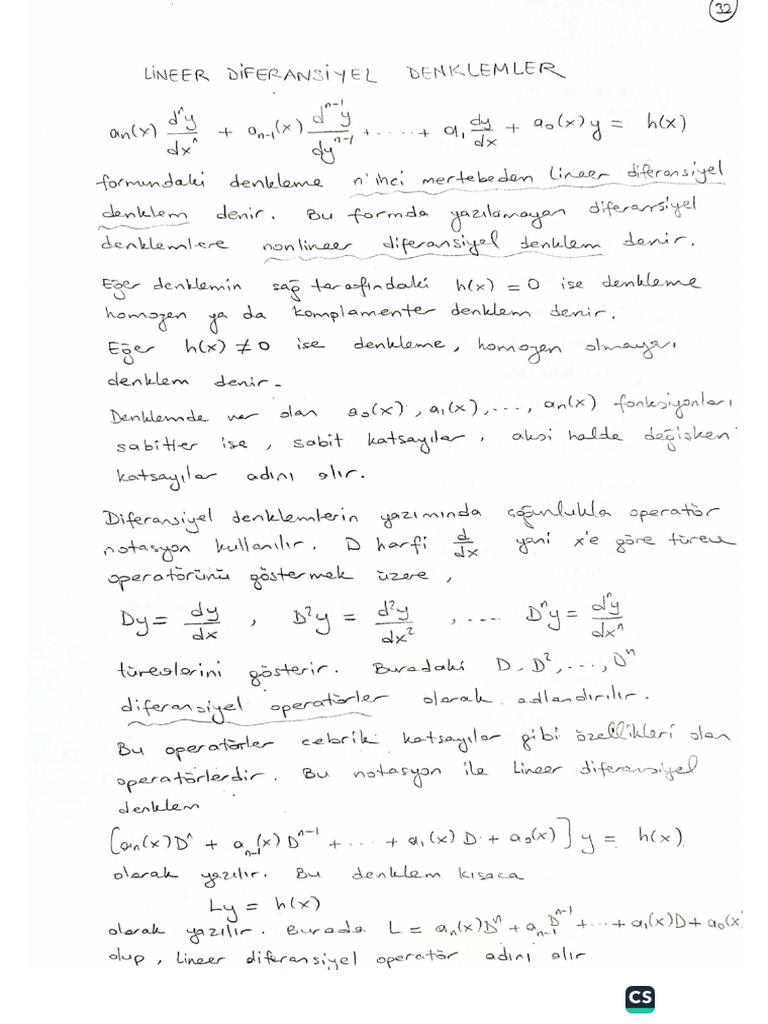 32
LİNEER DİFERANSİYEL DENKLEMLER
an(x) dⁿy/dxⁿ + an-1(x) dⁿ⁻¹y/dyⁿ⁻¹ + ..... + a₁ dy/dx + a₀(x)y = h(x)
formundaki denkleme n'inci mertebeden lineer diferansiyel
denklem denir. Bu formda yazılamayan diferansiyel
denklemlere nonlineer diferansiyel denklem denir.
Eğer denklemin sağ tarafındaki h(x) = 0 ise denkleme
homojen ya da komplamenter denklem denir.
Eğer h(x) ≠ 0 ise denkleme, homojen olmayan
denklem denir.
Denklemde yer alan a₀(x), a₁(x), ..., an(x) fonksiyonları
sabitler ise, sabit katsayılar, aksi halde değişken
katsayılar adını alır.
Diferansiyel denklemlerin yazımında çoğunlukla operatör
notasyon kullanılır. D harfi d/dx yani x'e göre türev
operatörünü göstermek üzere,
Dy = dy/dx , D²y = d²y/dx² , .... Dⁿy = dⁿy/dxⁿ
türevlerini gösterir. Buradaki D, D², ..., Dⁿ
diferansiyel operatörler olarak adlandırılır.
Bu operatörler cebrik katsayılar gibi özellikleri olan
operatörlerdir. Bu notasyon ile Lineer diferansiyel
denklem
[an(x)Dⁿ + an-1(x)Dⁿ⁻¹ + ... + a₁(x)D + a₀(x)]y = h(x)
olarak yazılır. Bu denklem kısaca
Ly = h(x)
olarak yazılır. Burada L = an(x)Dⁿ + an-1Dⁿ⁻¹ + ... + a₁(x)D + a₀(x
olup, Lineer diferansiyel operatör adını alır.
CS